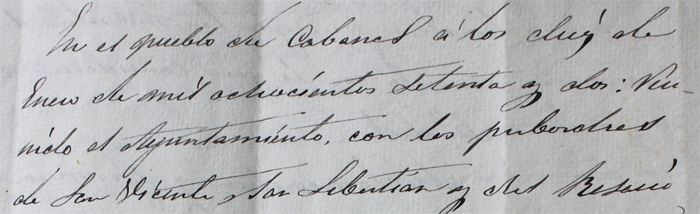 En el pueblo de Cabanes á los diez de
Enero de mil ochocientos setenta y dos: Reu-
nido el Ayuntamiento, con los
de San Vicente, San Sebastian y del Rosario